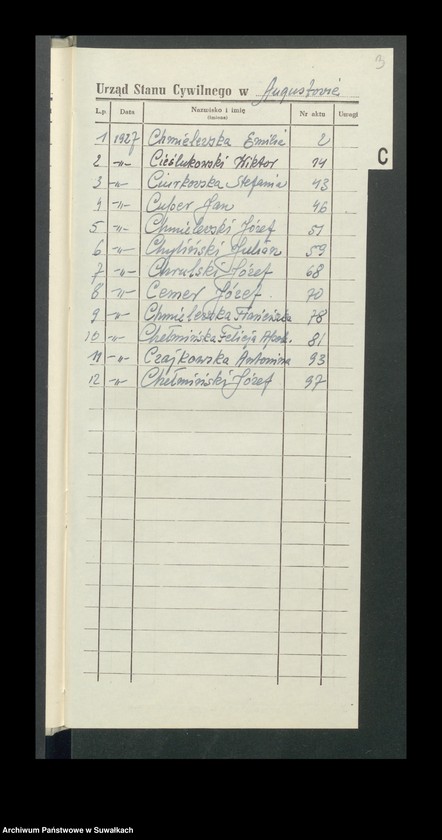 3
Urząd Stanu Cywilnego w Augustowie
L.p. Data Nazwisko i imię (imiona) Nr aktu Uwagi
C
1 1927 Chmielewska Emilia 2
2 -"- Cieślukowski Wiktor 14
3 -"- Ciurkowska Stefania 43
4 -"- Cuper Jan 46
5 -"- Chmielewski Józef 51
6 -"- Chyliński Julian 59
7 -"- Chrulski Józef 68
8 -"- Cemer Józef 70
9 -"- Chmielewska Franciszka 78
10 -"- Chełmińska Felicja 81
11 -"- Czajkowska Antonina 93
12 -"- Chełmiński Józef 97
Archiwum Państwowe w Suwałkach